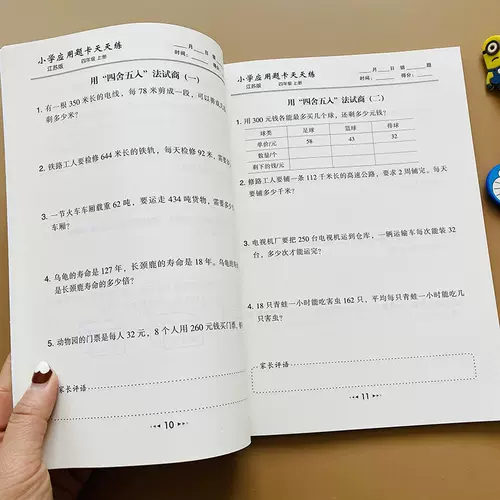 小学应用题卡天天练
江苏版 四年级 上册
月 日 星
时间:
用“四舍五入”法试商（一）
1. 有一根 350 米长的电线，每 78 米剪成一段，可以剪成
剩多少米?
2. 铁路工人要检修 644 米长的铁轨，每天检修 92 米，需要
3. 一节火车车厢载重 62 吨，要运走 434 吨货物，需要多少
车厢?
4. 乌龟的寿命是 127 年，长颈鹿的寿命是 18 年。乌龟的寿
是长颈鹿的寿命的多少倍?
5. 动物园的门票是每人 32 元，8 个人用 260 元钱买门票，
家长评语
10
小学应用题卡天天练
江苏版 四年级 上册
月 日 错 题
时间: 得分:
用“四舍五入”法试商（二）
1. 用 300 元钱各能最多买几个球，还剩多少元钱?
球类 足球 篮球 排球
单价/元 58 43 32
数量/个
剩下的钱/元
2. 修路工人要铺一条 112 千米长的高速公路，要求 2 周铺完。每天
要铺多少千米?
3. 电视机厂要把 250 台电视机运到仓库，一辆运输车每次能装 32
台，多少次才能运完?
4. 18 只青蛙一小时能吃害虫 162 只，平均每只青蛙一小时能吃几
只害虫?
家长评语
11